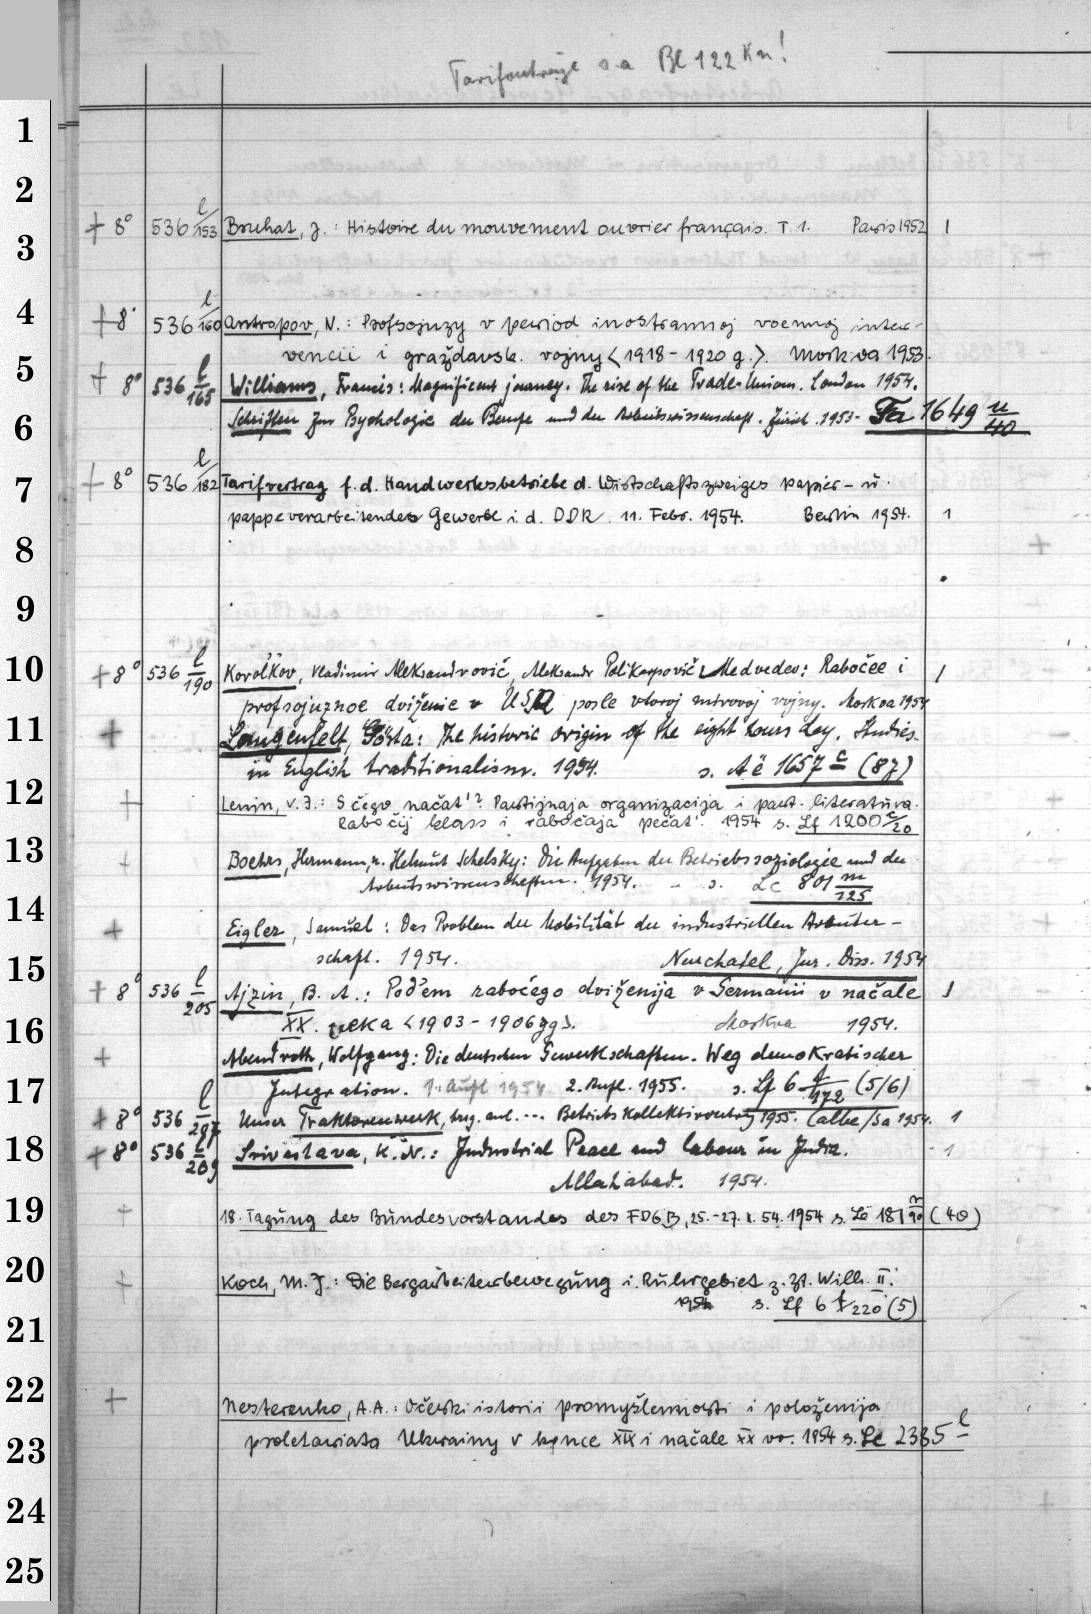 Tarifverträge s. a Bl 122 Kn!
1
2
3 + 8° 536 l/153 Bruhat, J.: Histoire du mouvement ouvrier français. T 1. Paris 1952 1
4 + 8° 536 l/160 Antropov, N.: Profsojuzy v period inostrannoj voennoj inter-
vencii i graždansk. vojny <1918-1920 g.>. Moskva 1953.
5 + 8° 536 l/165 Williams, Francis: Magnificent journey. The rise of the Trade-Unions. London 1954.
6 Schriften zur Psychologie der Berufe und der Arbeitswissenschaft. Zürich 1953- Fa 1649 u/40
7 + 8° 536 l/182 Tarifvertrag f. d. Handwerksbetriebe d. Wirtschaftszweiges papier- u.
pappeverarbeitendes Gewerbe i. d. DDR. 11. Febr. 1954. Berlin 1954. 1
8
9
10 + 8° 536 l/190 Korol'kov, Vladimir Aleksandrovič, Aleksandr Polikarpovič Medvedev: Rabočee i 1
profsojuznoe dviženie v USA posle vtoroj mirovoj vojny. Moskva 1954
11 + Langenfelt, Gösta: The historic origin of the eight hours day. Studies
in English traditionalism. 1954. s. Aë 1657 c (87)
12 + Lenin, V. J.: S čego načat'? Partijnaja organizacija i part. literatura.
Rabočij klass i rabočaja pečat'. 1954 s. Lf 1200 c/20
13 + Boehrs, Hermann, u. Helmut Schelsky: Die Aufgaben der Betriebssoziologie und der
Arbeitswissenschaften. 1954. s. Lc 801 m/125
14 + Eigler, Samuel: Das Problem der Mobilität der industriellen Arbeiter-
15 schaft. 1954. Neuchatel, Jur. Diss. 1954
+ 8° 536 l/205 Ajzin, B. A.: Pod'em rabočego dviženija v Germanii v načale 1
16 XX. veka <1903-1906 gg>. Moskva 1954.
+ Abendroth, Wolfgang: Die deutschen Gewerkschaften. Weg demokratischer
17 Integration. 1. Aufl 1954 2. Aufl. 1955. s. Lf 6 f/172 (5/6)
+ 8° 536 l/207 Unser Traktorenwerk, hrg. anl. ... Betriebskollektivvertrag 1955. Calbe/Sa 1954. 1
18 + 8° 536 l/209 Srivastava, K. N.: Industrial Peace and labour in India. 1
Allahabad. 1954.
19 + 18. Tagung des Bundesvorstandes des FDGB, 25.-27.I.54. 1954 s. Le 181 n/90 (40)
20 + Koch, M. J.: Die Bergarbeiterbewegung i. Ruhrgebiet z. Zt. Wilh. II.
1954 s. Lf 6 f/220 (5)
21
22 + Nesterenko, A. A.: Očerki istorii promyšlennosti i položenija
23 proletariata Ukrainy v konce XIX i načale XX vv. 1954 s. Lc 2385 l
24
25